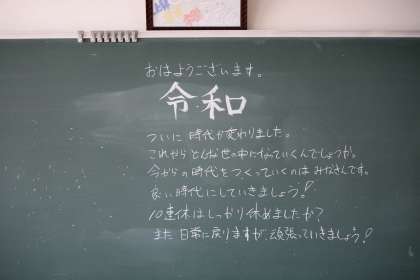 おはようございます。
令和
ついに 時代が変わりました。
これから どんな世の中になっていくんでしょうか。
今からの時代をつくっていくのは みなさんです。
良い時代にしていきましょう!
10連休はしっかり休めましたか?
また 日常に戻りますが 頑張っていきましょう!